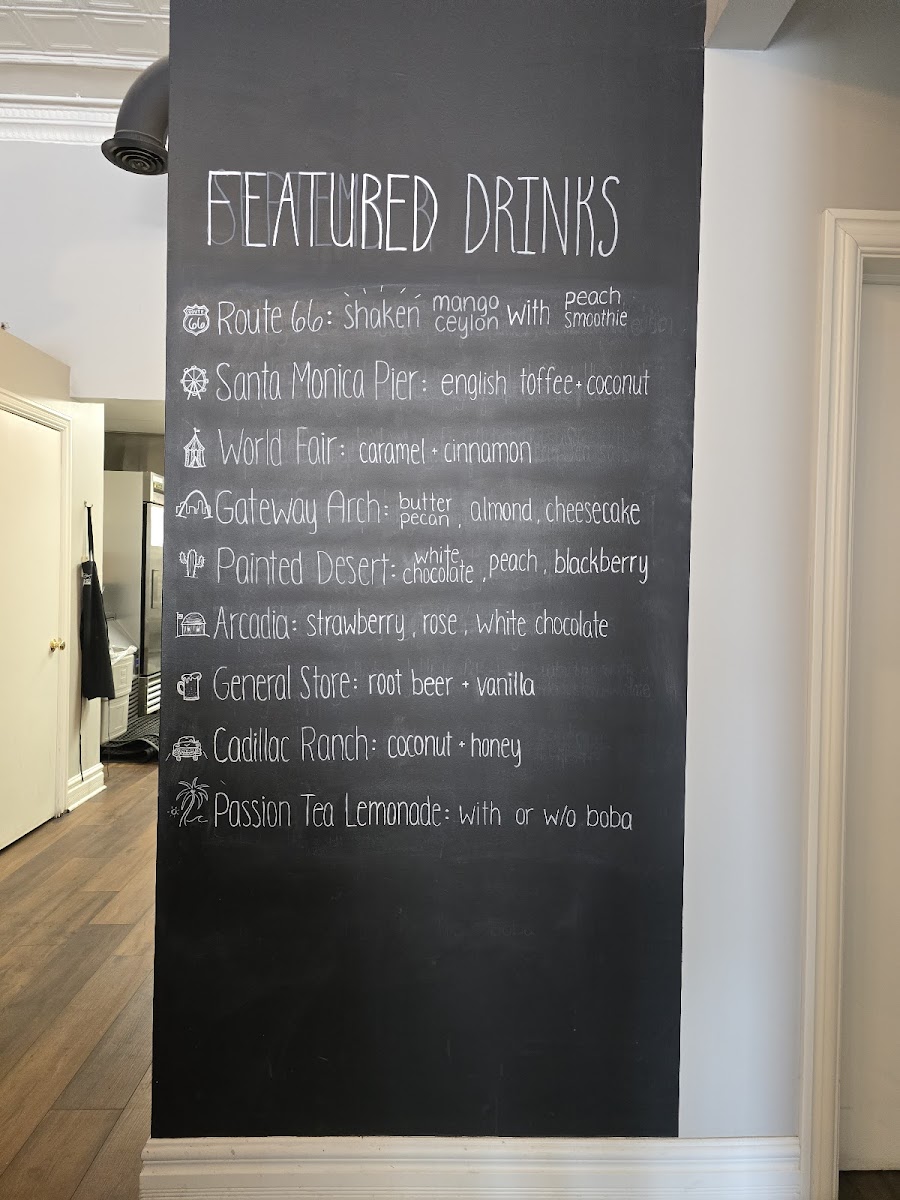 FEATURED DRINKS
ROUTE 66 Route 66: shaken mango ceylon with peach smoothie
Santa Monica Pier: english toffee + coconut
World Fair: caramel + cinnamon
Gateway Arch: butter pecan, almond, cheesecake
Painted Desert: white chocolate, peach, blackberry
Arcadia: strawberry, rose, white chocolate
General Store: root beer + vanilla
Cadillac Ranch: coconut + honey
Passion Tea Lemonade: with or w/o boba